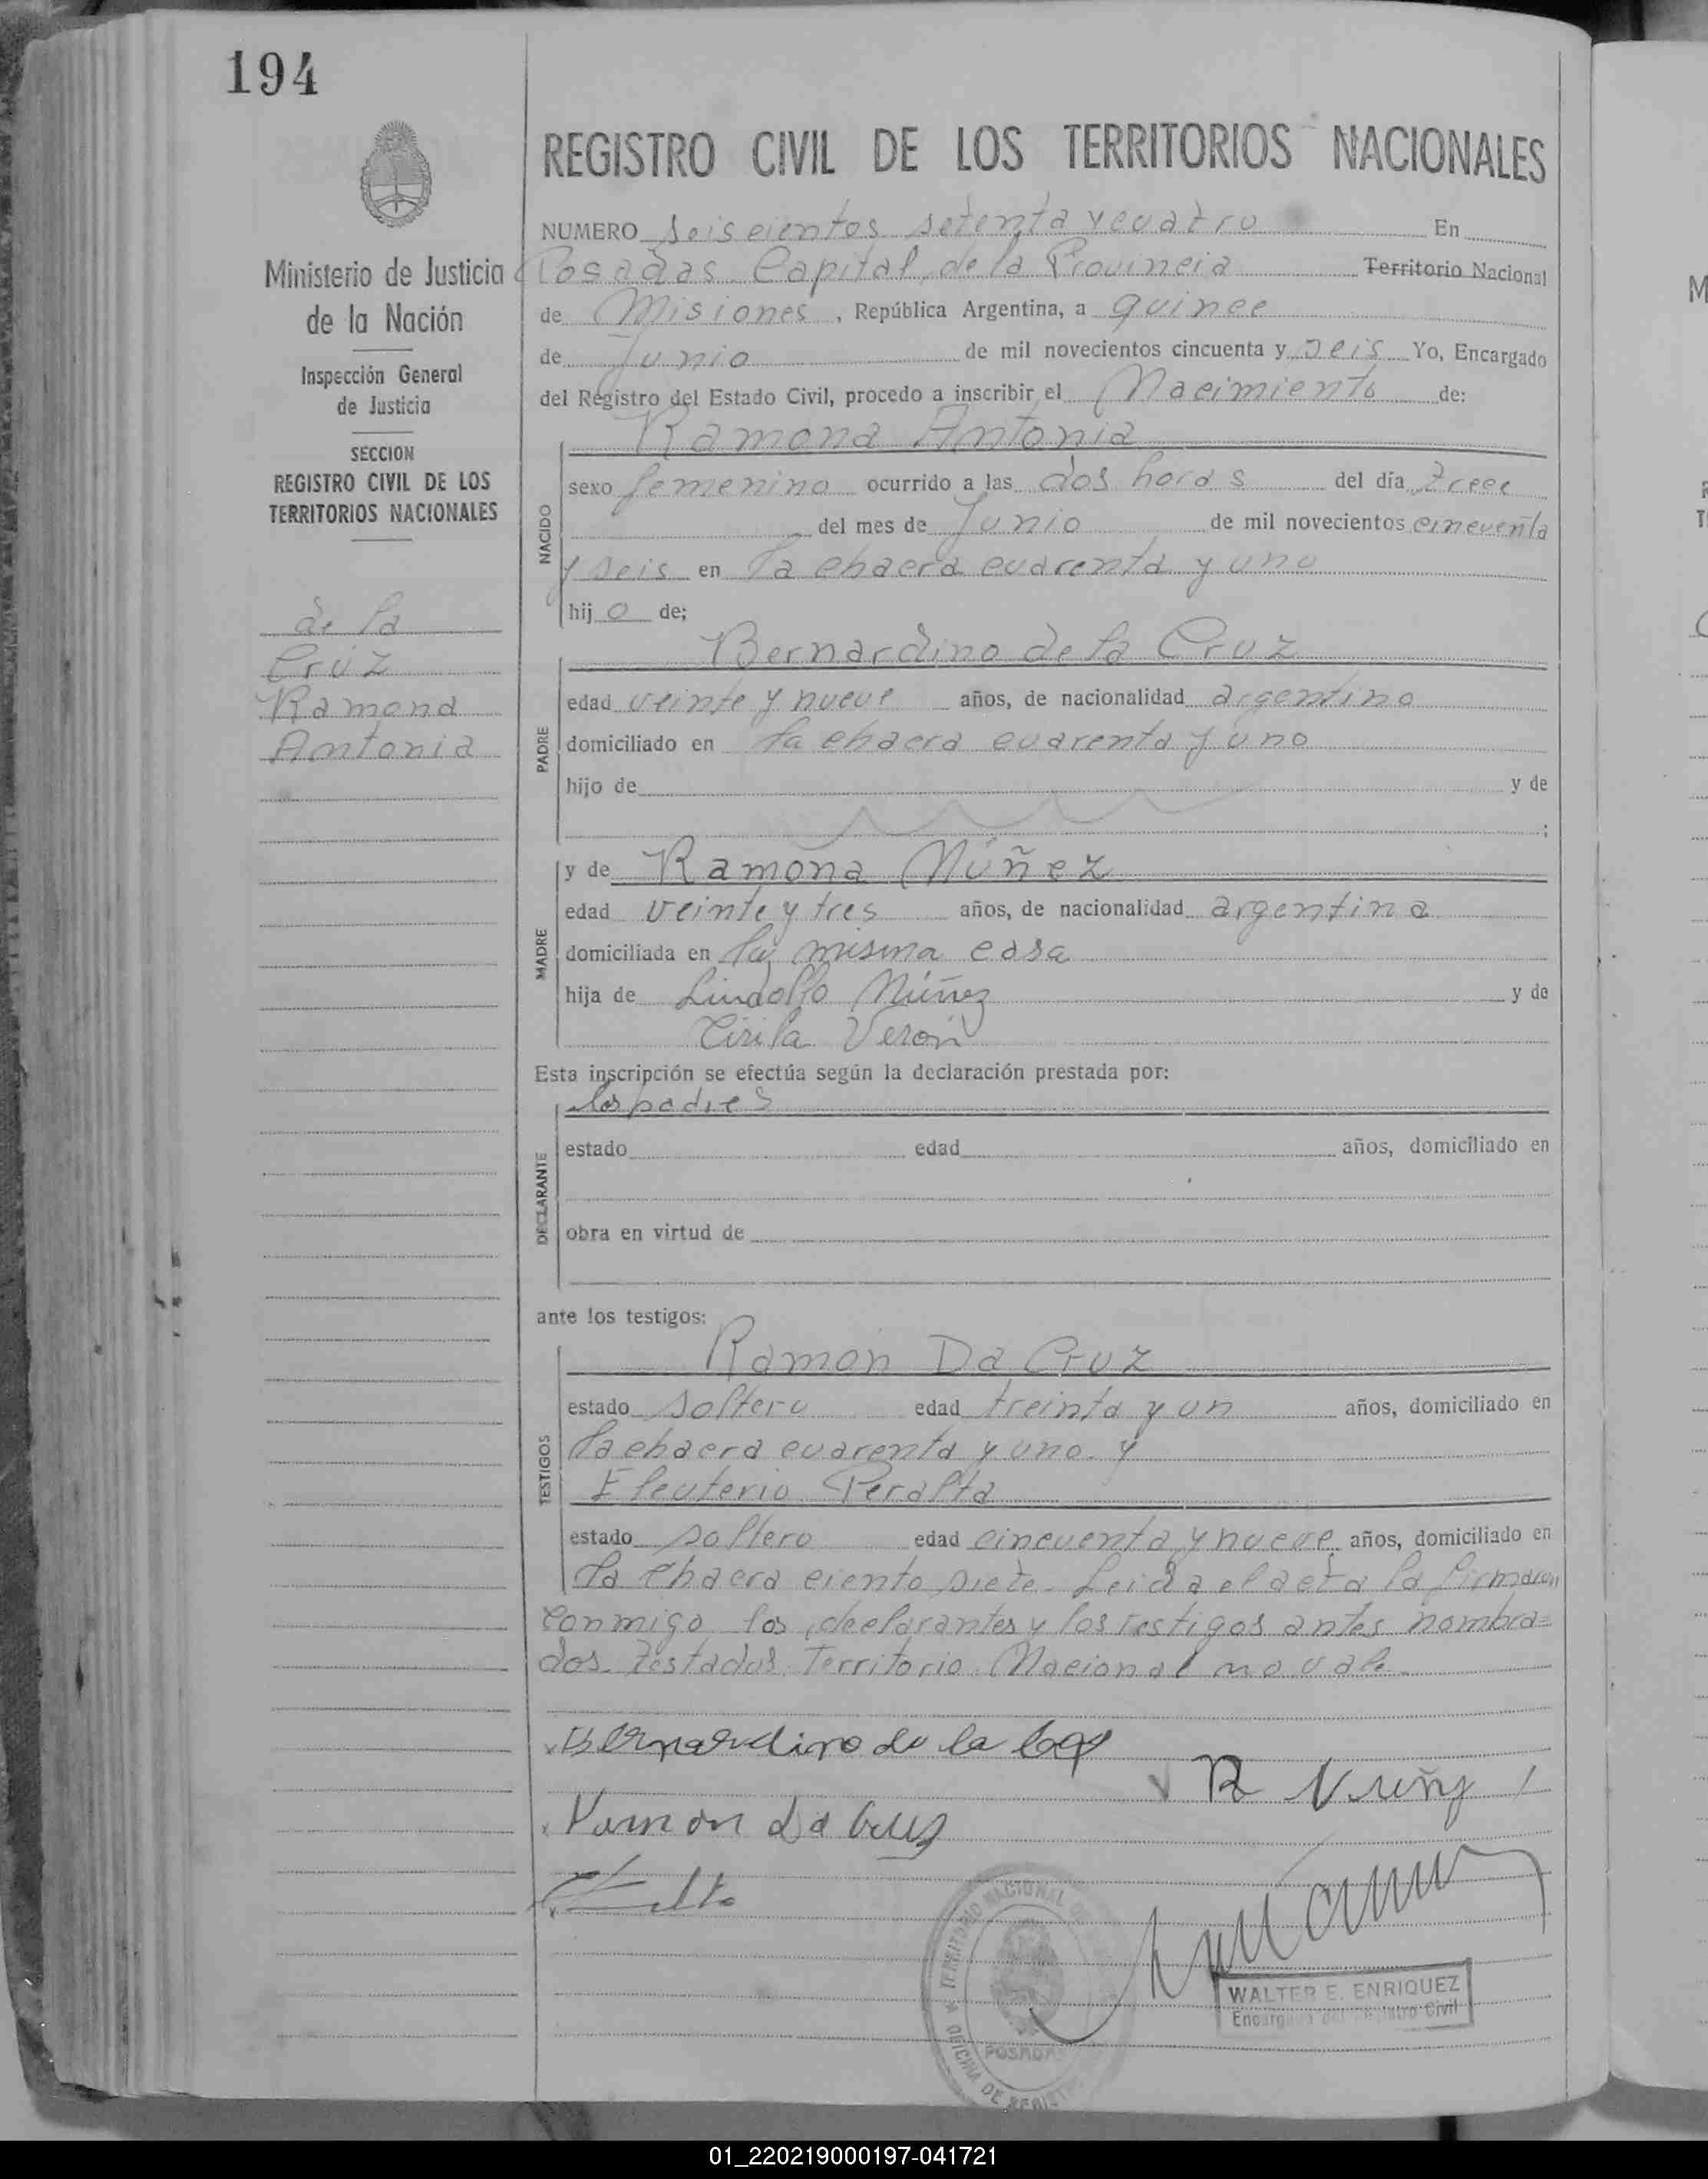 194
REGISTRO CIVIL DE LOS TERRITORIOS NACIONALES
Ministerio de Justicia
de la Nación
Inspección General
de Justicia
SECCION
REGISTRO CIVIL DE LOS
TERRITORIOS NACIONALES
de la
Cruz
Ramona
Antonia
NUMERO Seiscientos setenta y cuatro En
Posadas Capital de la Provincia Territorio Nacional
de Misiones, República Argentina, a quince
de Junio de mil novecientos cincuenta y seis Yo, Encargado
del Registro del Estado Civil, procedo a inscribir el Nacimiento de:
NACIDO
Ramona Antonia
sexo femenino ocurrido a las dos horas del día trece
del mes de Junio de mil novecientos cincuenta
y seis en la chacra cuarenta y uno
hij o de;
PADRE
Bernardino de la Cruz
edad veinte y nueve años, de nacionalidad argentino
domiciliado en la chacra cuarenta y uno
hijo de y de
;
MADRE
y de Ramona Núñez
edad veinte y tres años, de nacionalidad argentina
domiciliada en la misma casa
hija de Lindolfo Núñez y de
Cirila Verón
Esta inscripción se efectúa según la declaración prestada por:
DECLARANTE
los padres
estado edad años, domiciliado en
obra en virtud de
ante los testigos:
TESTIGOS
Ramon Da Cruz
estado soltero edad treinta y un años, domiciliado en
la chacra cuarenta y uno y
Eleuterio Peralta
estado soltero edad cincuenta y nueve años, domiciliado en
la chacra ciento siete. Leida el acta la firmaron
conmigo los declarantes y los testigos antes nombra=
dos. Testados: Territorio Nacional no vale
Bernardino de la
R Nuñez
Ramon Da Cruz
TERRITORIO NACIONAL
OFICINA DE REGIST
POSADA
WALTER E. ENRIQUEZ
Encargado del Registro Civil
01_220219000197-041721